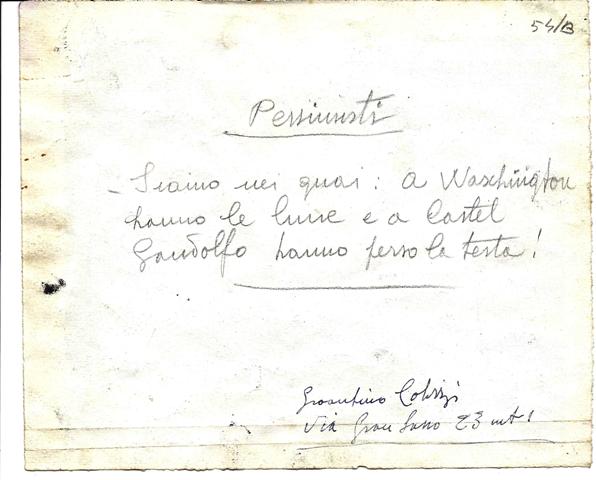 54/B
Pessimisti
- Siamo nei guai: a Waschington
hanno le lune e a Castel
Gandolfo hanno perso la testa!
Via Gran Sasso 23 int 1